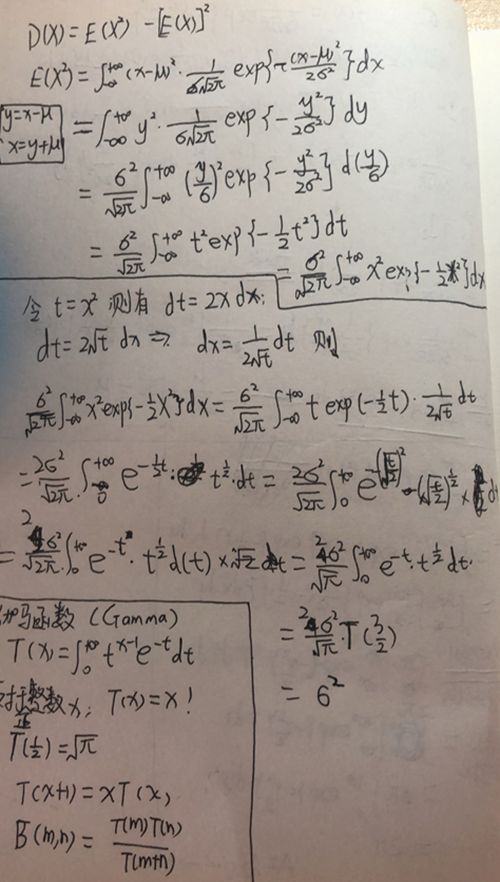 D(X) = E(X²) - [E(X)]²
E(X²) = ∫_{-∞}^{+∞} (x-μ)² · 1/(σ√2π) exp{-(x-μ)²/2σ²}dx
y=x-μ
x=y+μ
= ∫_{-∞}^{+∞} y² · 1/(σ√2π) exp{-y²/2σ²} dy
= σ²/√2π ∫_{-∞}^{+∞} (y/σ)² exp{-y²/2σ²} d(y/σ)
= σ²/√2π ∫_{-∞}^{+∞} t² exp{-½t²} dt
= σ²/√2π ∫_{-∞}^{+∞} x² exp{-½x²}dx
令 t = x² 则有 dt = 2x dx;
dt = 2√t dx ⇒ dx = 1/(2√t) dt 则
σ²/√2π ∫_{-∞}^{+∞} x² exp{-½x²}dx = σ²/√2π ∫_{-∞}^{+∞} t exp(-½t) · 1/(2√t) dt
= 2σ²/√2π ∫_{0}^{+∞} e^{-½t} · t^{½} · dt = 2σ²/√2π ∫_{0}^{+∞}
= 2σ²/√2π · ∫_{0}^{+∞} e^{-t} · t^{½} d(t) × √2 = 2σ²/√π ∫_{0}^{+∞} e^{-t} · t^{½} dt.
= 2σ²/√π · T(3/2)
= σ²
伽马函数 (Gamma)
T(x) = ∫_{0}^{+∞} t^{x-1} e^{-t} dt
对于正整数x; T(x) = x!
T(½) = √π
T(x+1) = xT(x)
B(m,n) = T(m)T(n)/T(m+n)